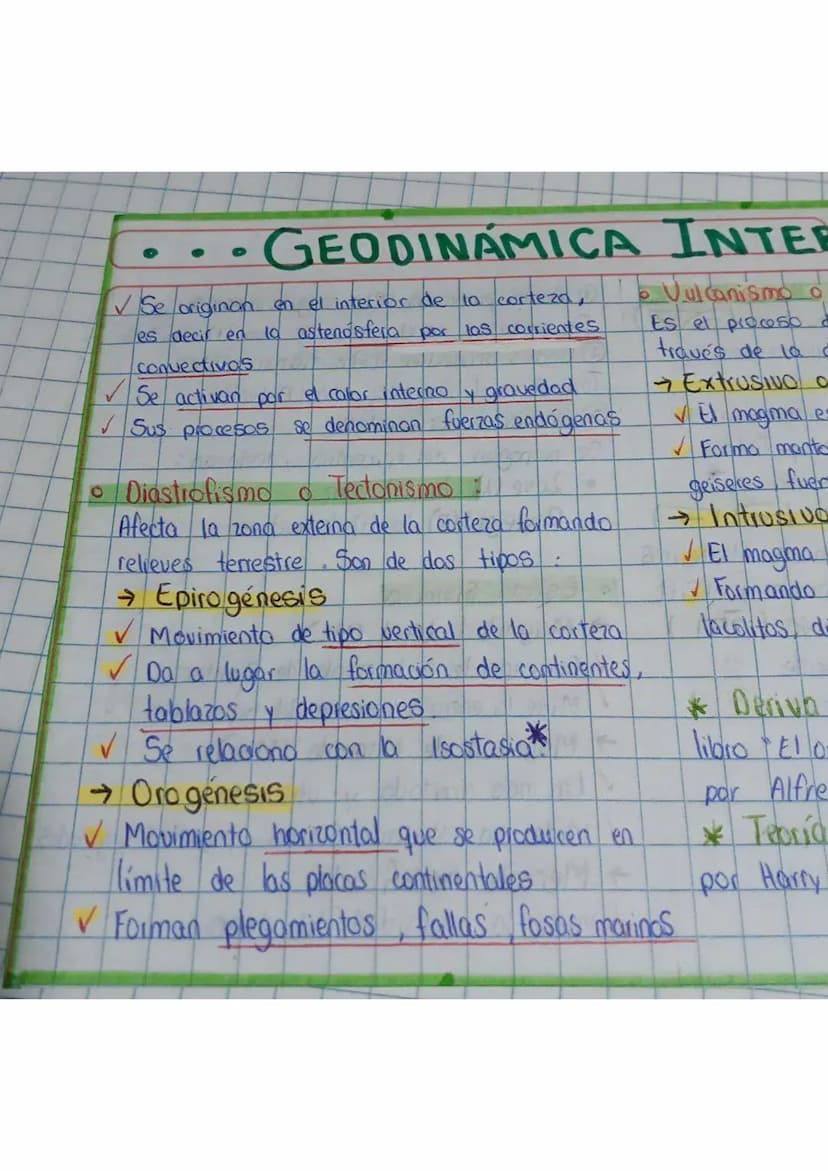 GEODINÁMICA INTER
✓ Se originan en el interior de la corteza,
es decir en la astenósfera por las corrientes
convectivas
✓ Se activan por el calor interno y gravedad
✓ Sus procesos se denominan fuerzas endógenas
• Diastrofismo o Tectonismo :
Afecta la zona externa de la corteza formando
relieves terrestre. Son de dos tipos :
→ Epirogénesis
✓ Movimiento de tipo vertical de la corteza
✓ Da a lugar la formación de continentes,
tablazos y depresiones.
✓ Se relaciona con la Isostasia*.
→ Orogénesis
✓ Movimiento horizontal que se producen en
límite de las placas continentales
✓ Forman plegamientos, fallas, fosas marinas
• Vulcanismo o
Es el proceso
través de la
→ Extrusivo o
✓ El magma es
✓ Forma monta
geiseres fuer
→ Intrusivo
✓ El magma
✓ Formando
lacolitos, di
* Deriva
libro "El o
por Alfre
* Teoría
por Harry